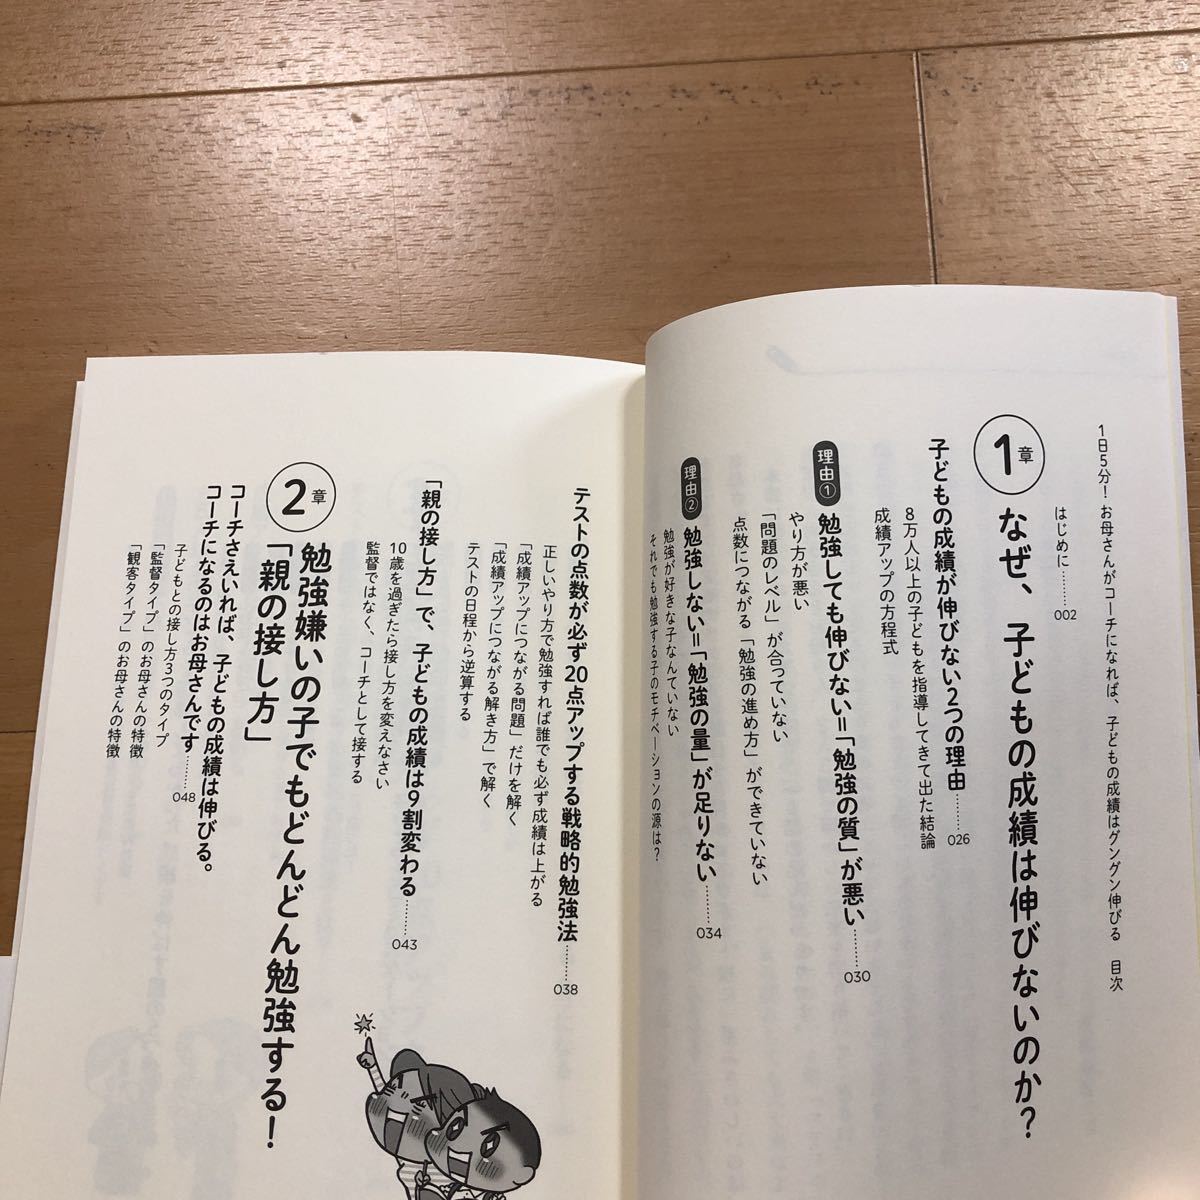 1日5分！お母さんがコーチになれば、子どもの成績はグングン伸びる　目次
はじめに……002
1章 なぜ、子どもの成績は伸びないのか？
子どもの成績が伸びない2つの理由……026
8万人以上の子どもを指導してきて出た結論
成績アップの方程式
理由① 勉強しても伸びない＝「勉強の質」が悪い……030
やり方が悪い
「問題のレベル」が合っていない
点数につながる「勉強の進め方」ができていない
理由② 勉強しない＝「勉強の量」が足りない……034
勉強が好きな子なんていない
それでも勉強する子のモチベーションの源は？
テストの点数が必ず20点アップする戦略的勉強法……038
正しいやり方で勉強すれば誰でも必ず成績は上がる
「成績アップにつながる問題」だけを解く
「成績アップにつながる解き方」で解く
テストの日程から逆算する
「親の接し方」で、子どもの成績は9割変わる……043
10歳を過ぎたら接し方を変えなさい
監督ではなく、コーチとして接する
2章 勉強嫌いの子でもどんどん勉強する！
「親の接し方」
コーチさえいれば、子どもの成績は伸びる。
コーチになるのはお母さんです……048
子どもとの接し方3つのタイプ
「監督タイプ」のお母さんの特徴
「観客タイプ」のお母さんの特徴